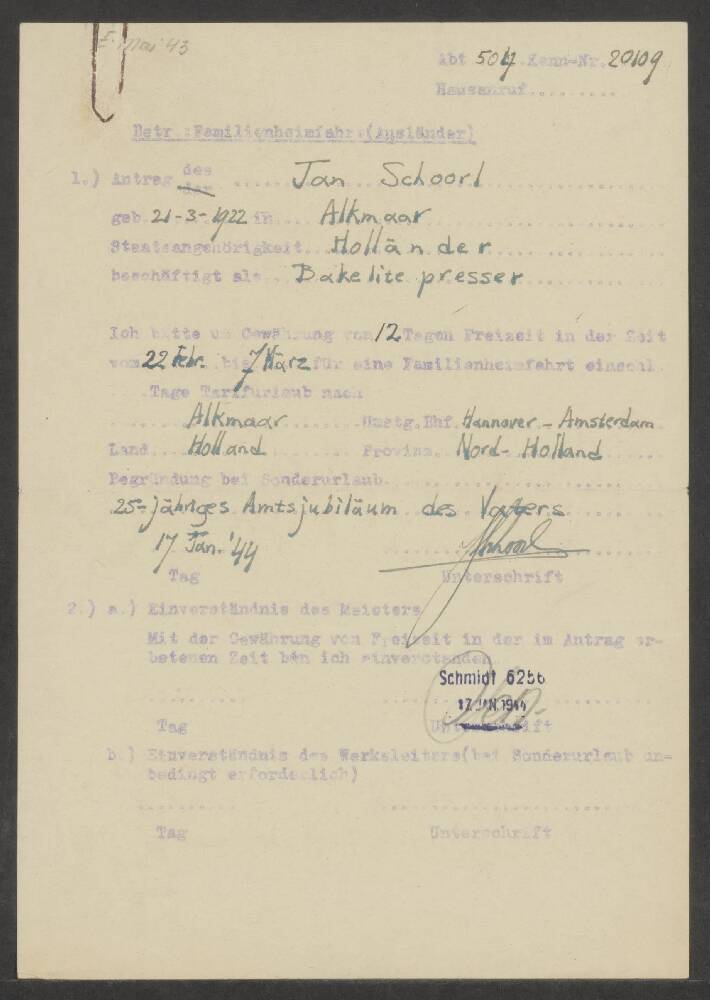 E. Mai '43
Abt 504 Kenn-Nr. 20109
Hausanruf..........
Betr.:Familienheimfahrt(Ausländer)
1.) Antrag des Jan Schoorl
der
geb. 21-3-1922 in Alkmaar
Staatsangehörigkeit Holländer
beschäftigt als Bakelite presser
Ich bitte um Gewährung von 12 Tagen Freizeit in der Zeit
vom 22 Febr. bis 7 März für eine Familienheimfahrt einschl.
Tage Tarifurlaub nach
Alkmaar Umstg.Bhf. Hannover - Amsterdam
Land Holland Provinz Nord-Holland
Begründung bei Sonderurlaub
25-jähriges Amtsjubiläum des Vaters
17 Jan. '44 JSchoorl
Tag Unterschrift
2.) a.) Einverständnis des Meisters
Mit der Gewährung von Freizeit in der im Antrag er-
betenen Zeit bin ich einverstanden.
Schmidt 6256
17. JAN. 1944
Tag Unterschrift
b.) Einverständnis des Werksleiters(bei Sonderurlaub un-
bedingt erforderlich)
Tag Unterschrift